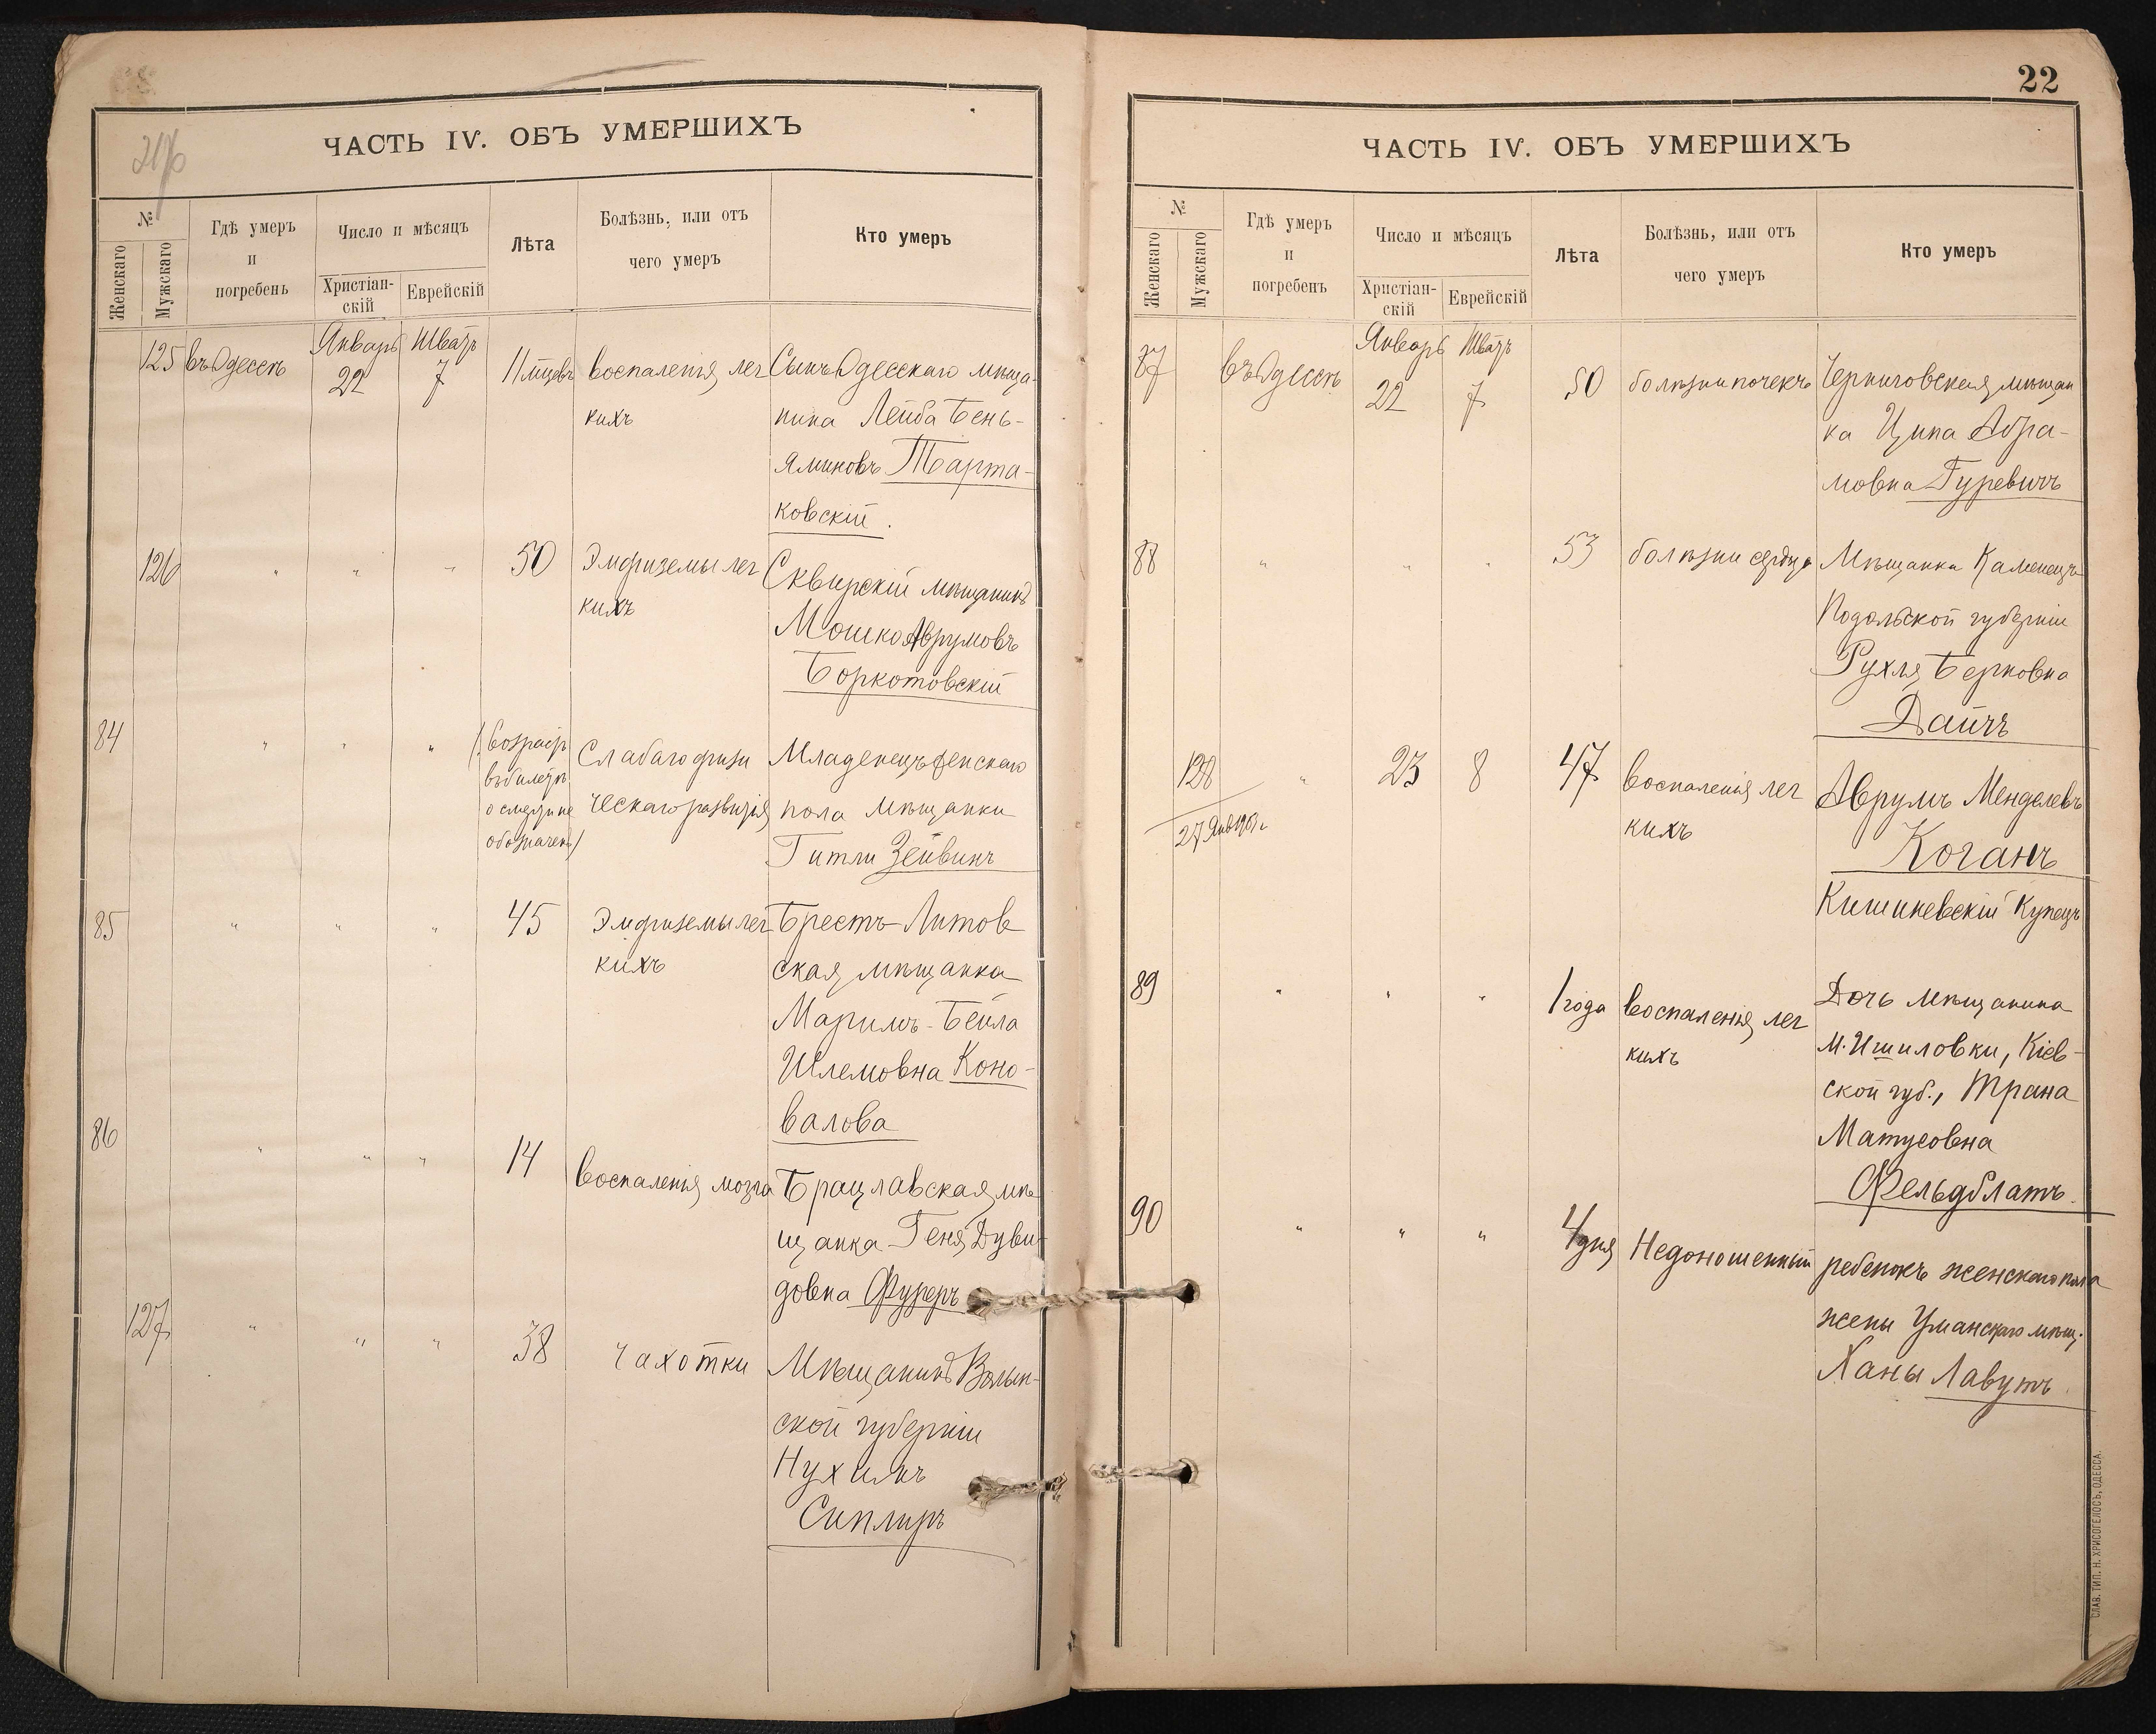 ЧАСТЬ IV. ОБЪ УМЕРШИХЪ
№
Женскаго
Мужскаго
Гдѣ умеръ
и
погребенъ
Число и мѣсяцъ
Христіан-
скій
Еврейскій
Лѣта
Болѣзнь, или отъ
чего умеръ
Кто умеръ
125 въ Одессѣ Январь 22 Шватъ 7 11 мѣцевъ
воспаленія лег
кихъ
Сынъ Одесскаго мѣща-
нина Лейба Бень-
яминовъ Тарта-
ковскій.
126 " " " 50
Эмфиземы лег
кихъ
Сквирскій мѣщанинъ
Мошко Аврумовъ
Боркотовскій
84 " " "
(возрастъ
въ билетѣ
о смерти не
обозначенъ)
Слабаго физи
ческаго развитія
Младенецъ женскаго
пола мѣщанки
Гитли Зейвинъ
85 " " " 45
Эмфиземы лег
кихъ
Брестъ-Литов
ская мѣщанка
Маримъ-Бейла
Шлемовна Коно-
валова
86 " " " 14
воспаленія мозга
Брацлавская мѣ
щанка Геня Дуви-
довна Фуреръ
127 " " " 38
чахотки
Мѣщанинъ Волын-
ской губерніи
Нухимъ
Сиплиръ
22
ЧАСТЬ IV. ОБЪ УМЕРШИХЪ
№
Женскаго
Мужскаго
Гдѣ умеръ
и
погребенъ
Число и мѣсяцъ
Христіан-
скій
Еврейскій
Лѣта
Болѣзнь, или отъ
чего умеръ
Кто умеръ
87 въ Одессѣ Январь 22 Шватъ 7 50
болѣзни почекъ
Черниговская мѣщан
ка Ципа Абра-
мовна Гуревичъ
88 " " " 53
болѣзни сердца
Мѣщанка Каменецъ
Подольской губерніи
Рухля Берковна
Дайчъ
128 " 23 8 47
воспаленія лег
кихъ
Аврумъ Менделевъ
Коганъ
Кишиневскій Купецъ
89 " " " 1 года
воспаленія лег
кихъ
Дочь мѣщанина
м. Ишиловки, Кіев-
ской губ., Трана
Матусовна
Фельдблатъ.
90 " " " 4 дня
Недоношенный
ребенокъ женскаго пола
жены Уманскаго мѣщ.
Ханы Лавутъ.
СЛАВ. ТИП. Н. ХРИСОГЕЛОСЪ, ОДЕССА.